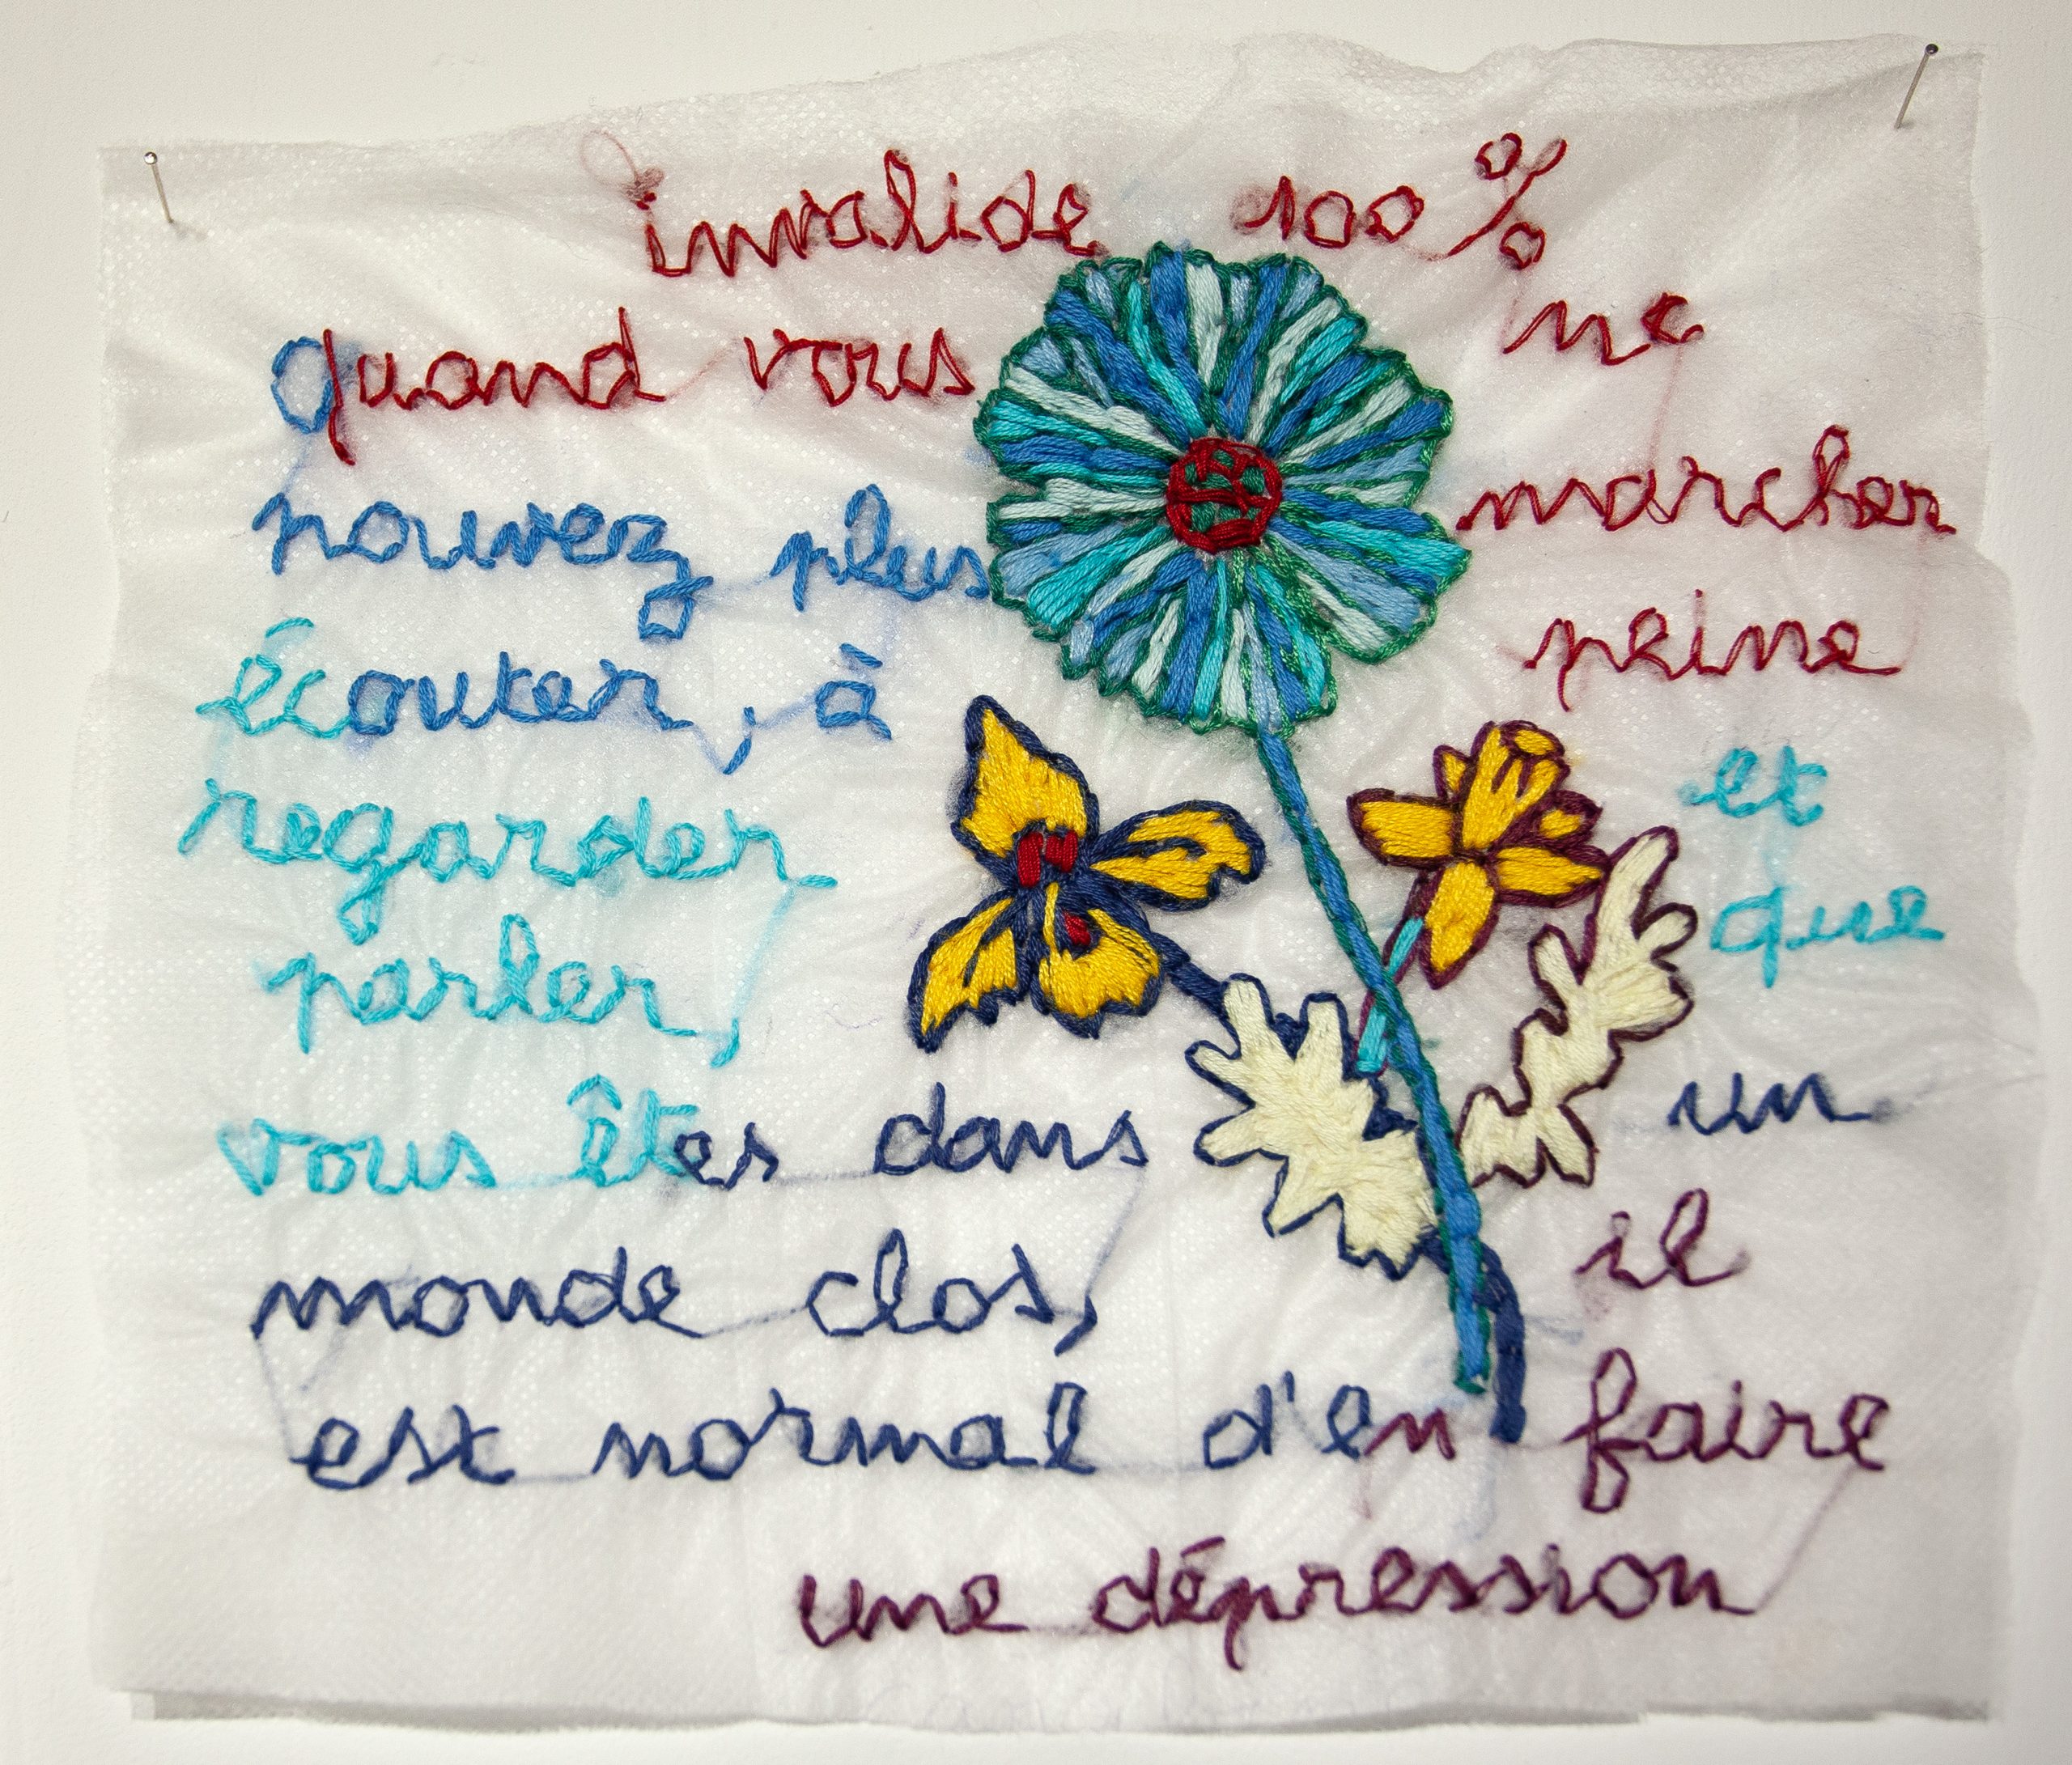 invalide 100%
quand vous ne
pouvez plus marcher
écouter, à peine
regarder et
parler, que
vous êtes dans un
monde clos, il
est normal d'en faire
une dépression